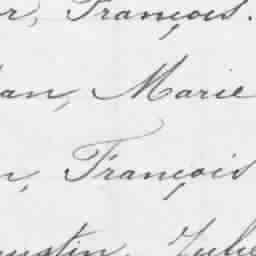 r, François.
an, Marie
n, François
ustin, Julie